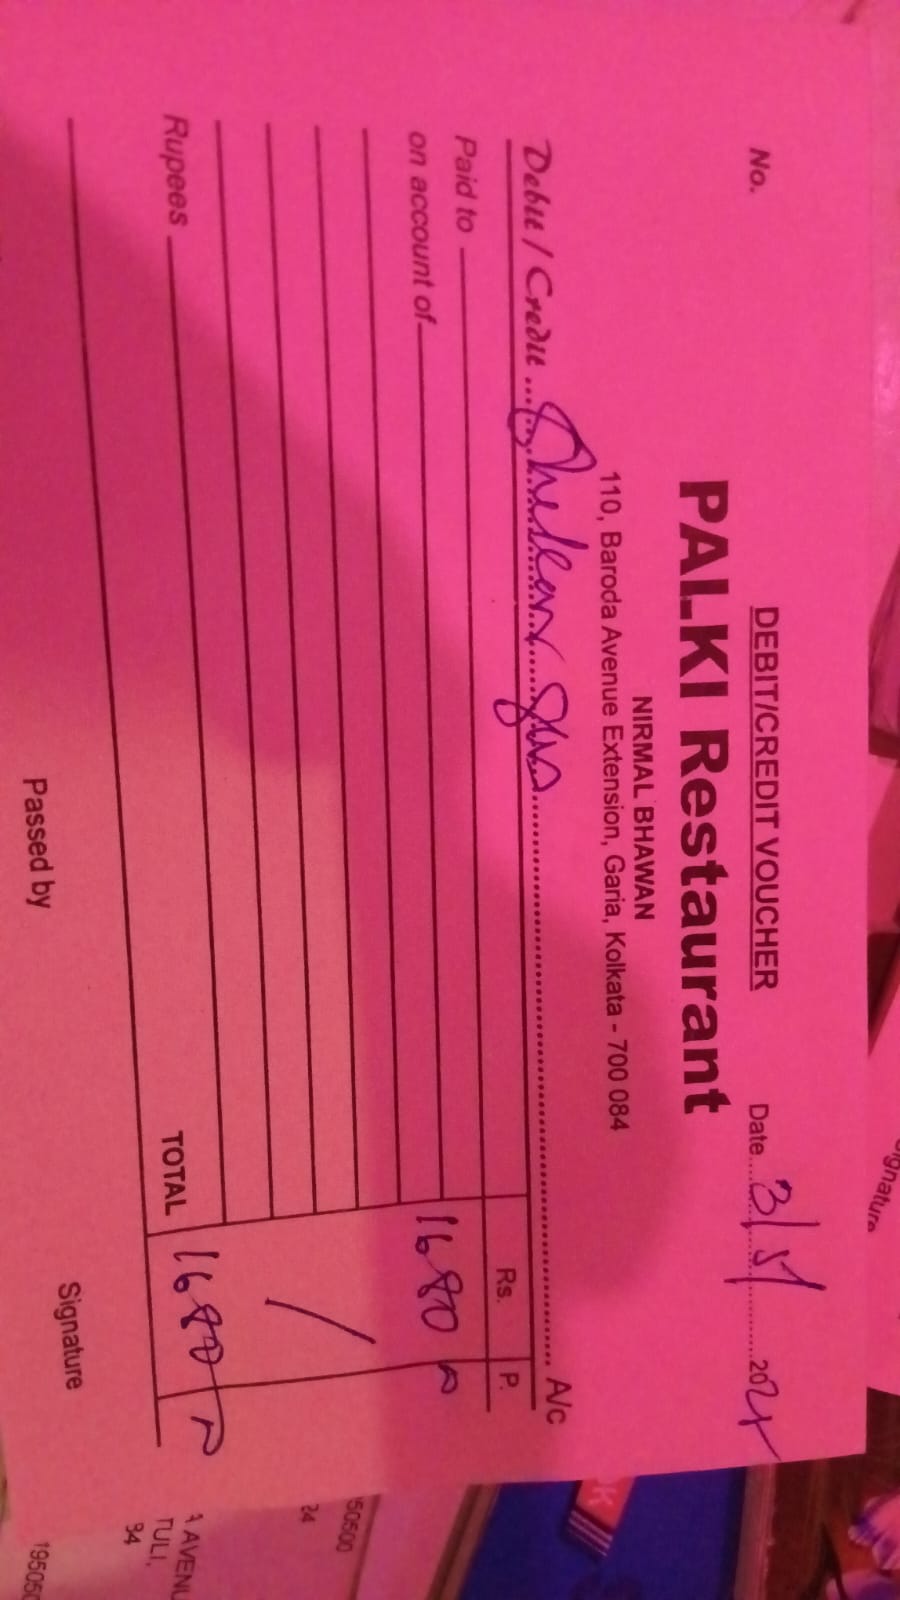 No.
DEBIT/CREDIT VOUCHER
Date 3/5/ 202
PALKI Restaurant
NIRMAL BHAWAN
110, Baroda Avenue Extension, Garia, Kolkata - 700 084
Debit / Credit A/c
Paid to Rs. P.
on account of 1680
Rupees TOTAL 1680
Passed by Signature
ignature
50500
24
AVENU
TULI,
94
19505